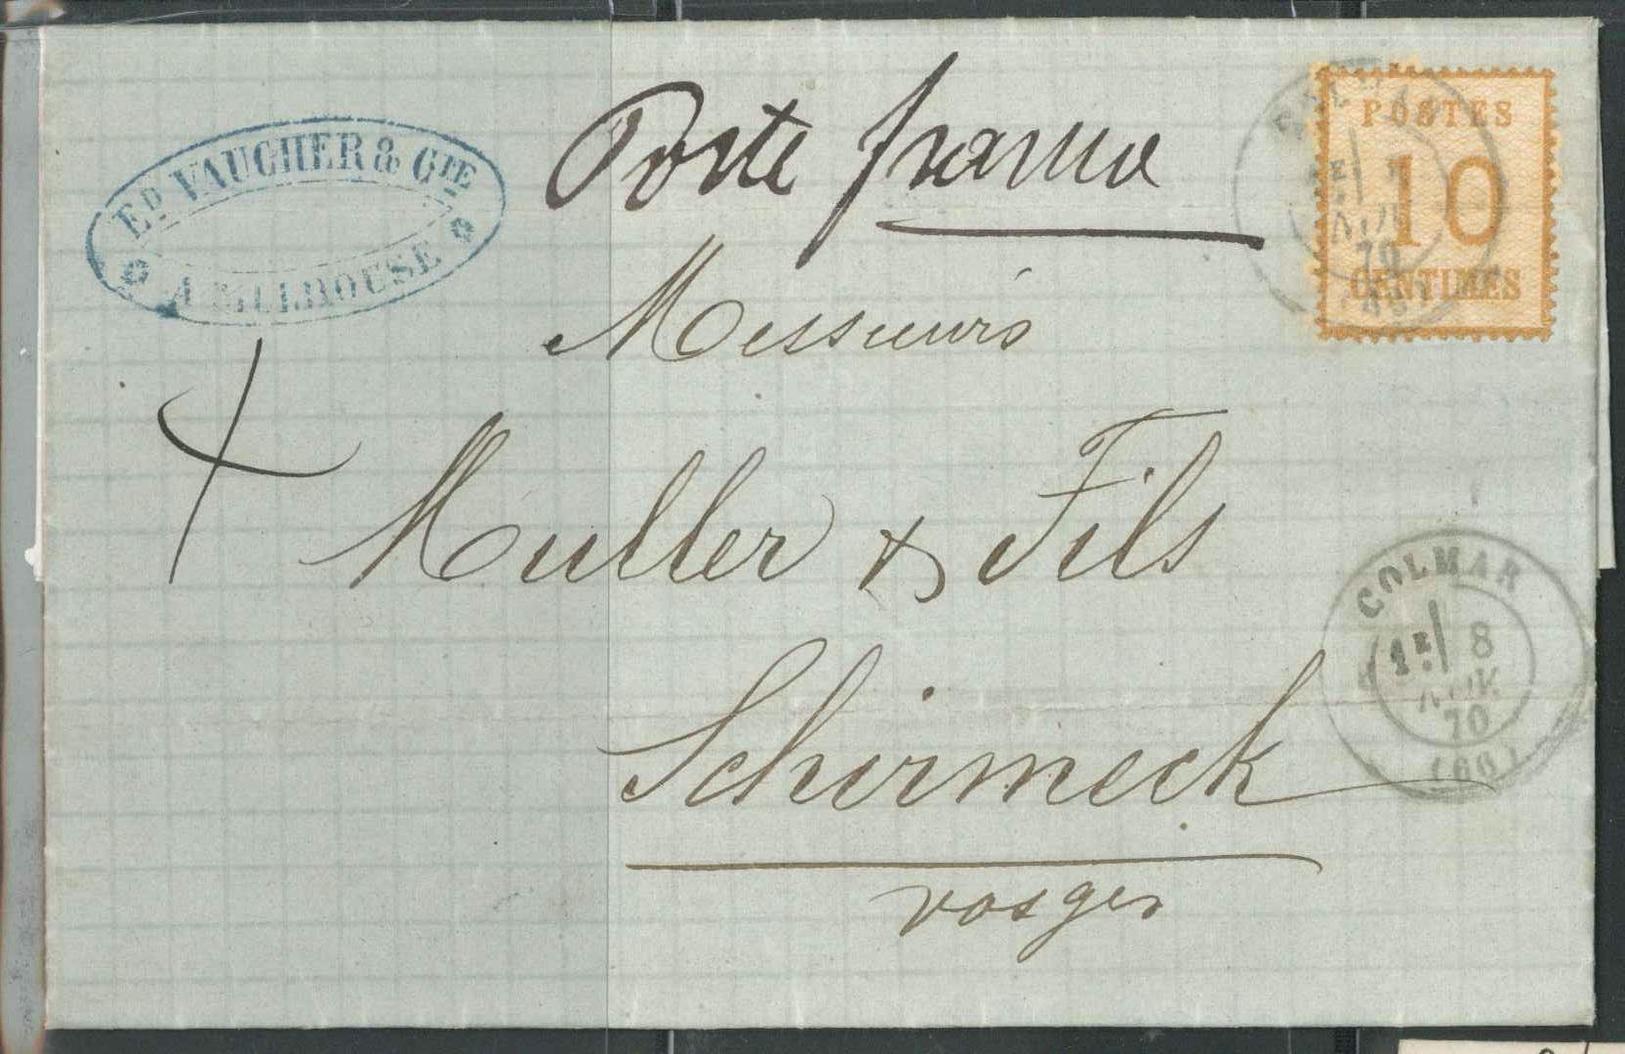 ED VAUCHER & CIE
A MULHOUSE
Porte franco
POSTES
10
CENTIMES
1E
NOV
70
Messieurs
Muller & Fils
Schirmeck
vosges
COLMAR
1E 8
NOV
70
(66)